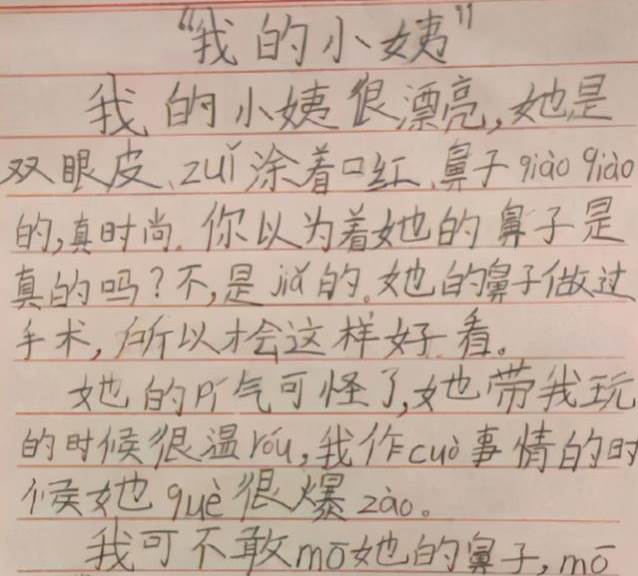 “我的小姨”
我的小姨很漂亮,她是
双眼皮、zuǐ涂着口红、鼻子qiào qiào
的,真时尚。你以为着她的鼻子是
真的吗?不,是jiǎ的。她的鼻子做过
手术,所以才会这样好看。
她的pí气可怪了,她带我玩
的时候很温róu,我作cuò事情的时
候她què很爆zào。
我可不敢mō她的鼻子,mō